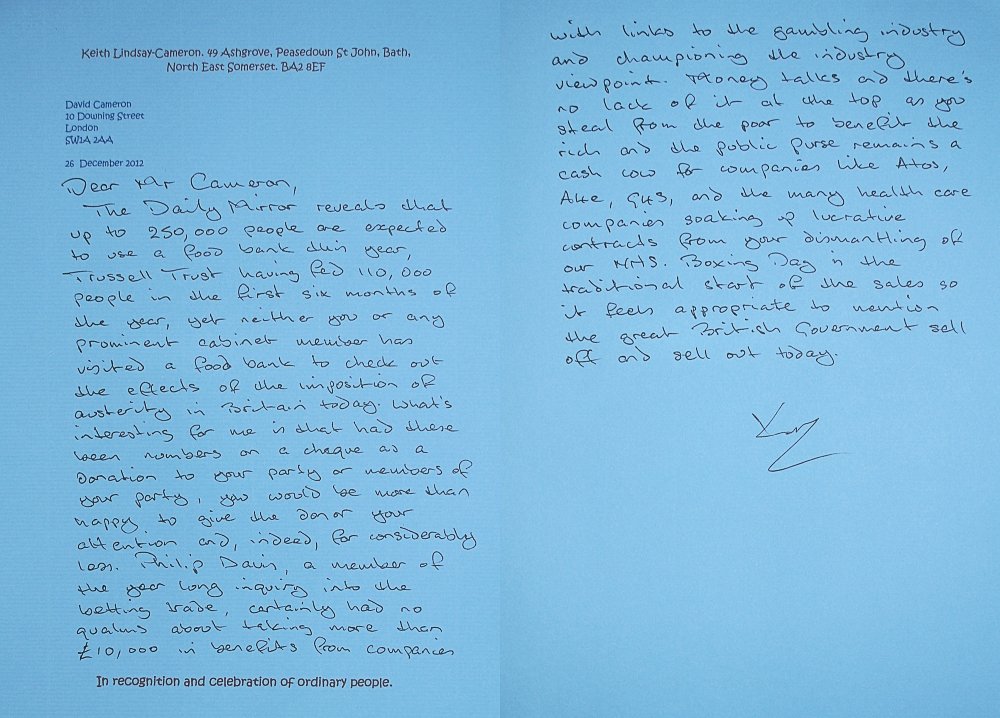 Keith Lindsay-Cameron. 49 Ashgrove, Peasedown St John, Bath,
North East Somerset. BA2 8EF
David Cameron
10 Downing Street
London
SW1A 2AA
26 December 2012
Dear Mr Cameron,
The Daily Mirror reveals that
up to 250,000 people are expected
to use a food bank this year,
Trussell Trust having fed 110,000
people in the first six months of
the year, yet neither you or any
prominent cabinet member has
visited a food bank to check out
the effects of the imposition of
austerity in Britain today. What's
interesting for me is that had these
been numbers on a cheque as a
donation to your party or members of
your party, you would be more than
happy to give the donor your
attention and, indeed, for considerably
less. Philip Davis, a member of
the year long inquiry into the
betting trade, certainly had no
qualms about taking more than
£10,000 in benefits from companies
In recognition and celebration of ordinary people.
with links to the gambling industry
and championing the industry
viewpoint. Money talks and there's
no lack of it at the top as you
steal from the poor to benefit the
rich and the public purse remains a
cash cow for companies like Atos,
A4e, G4S, and the many health care
companies soaking up lucrative
contracts from your dismantling of
our NHS. Boxing Day is the
traditional start of the sales so
it feels appropriate to mention
the great British Government sell
off and sell out today.